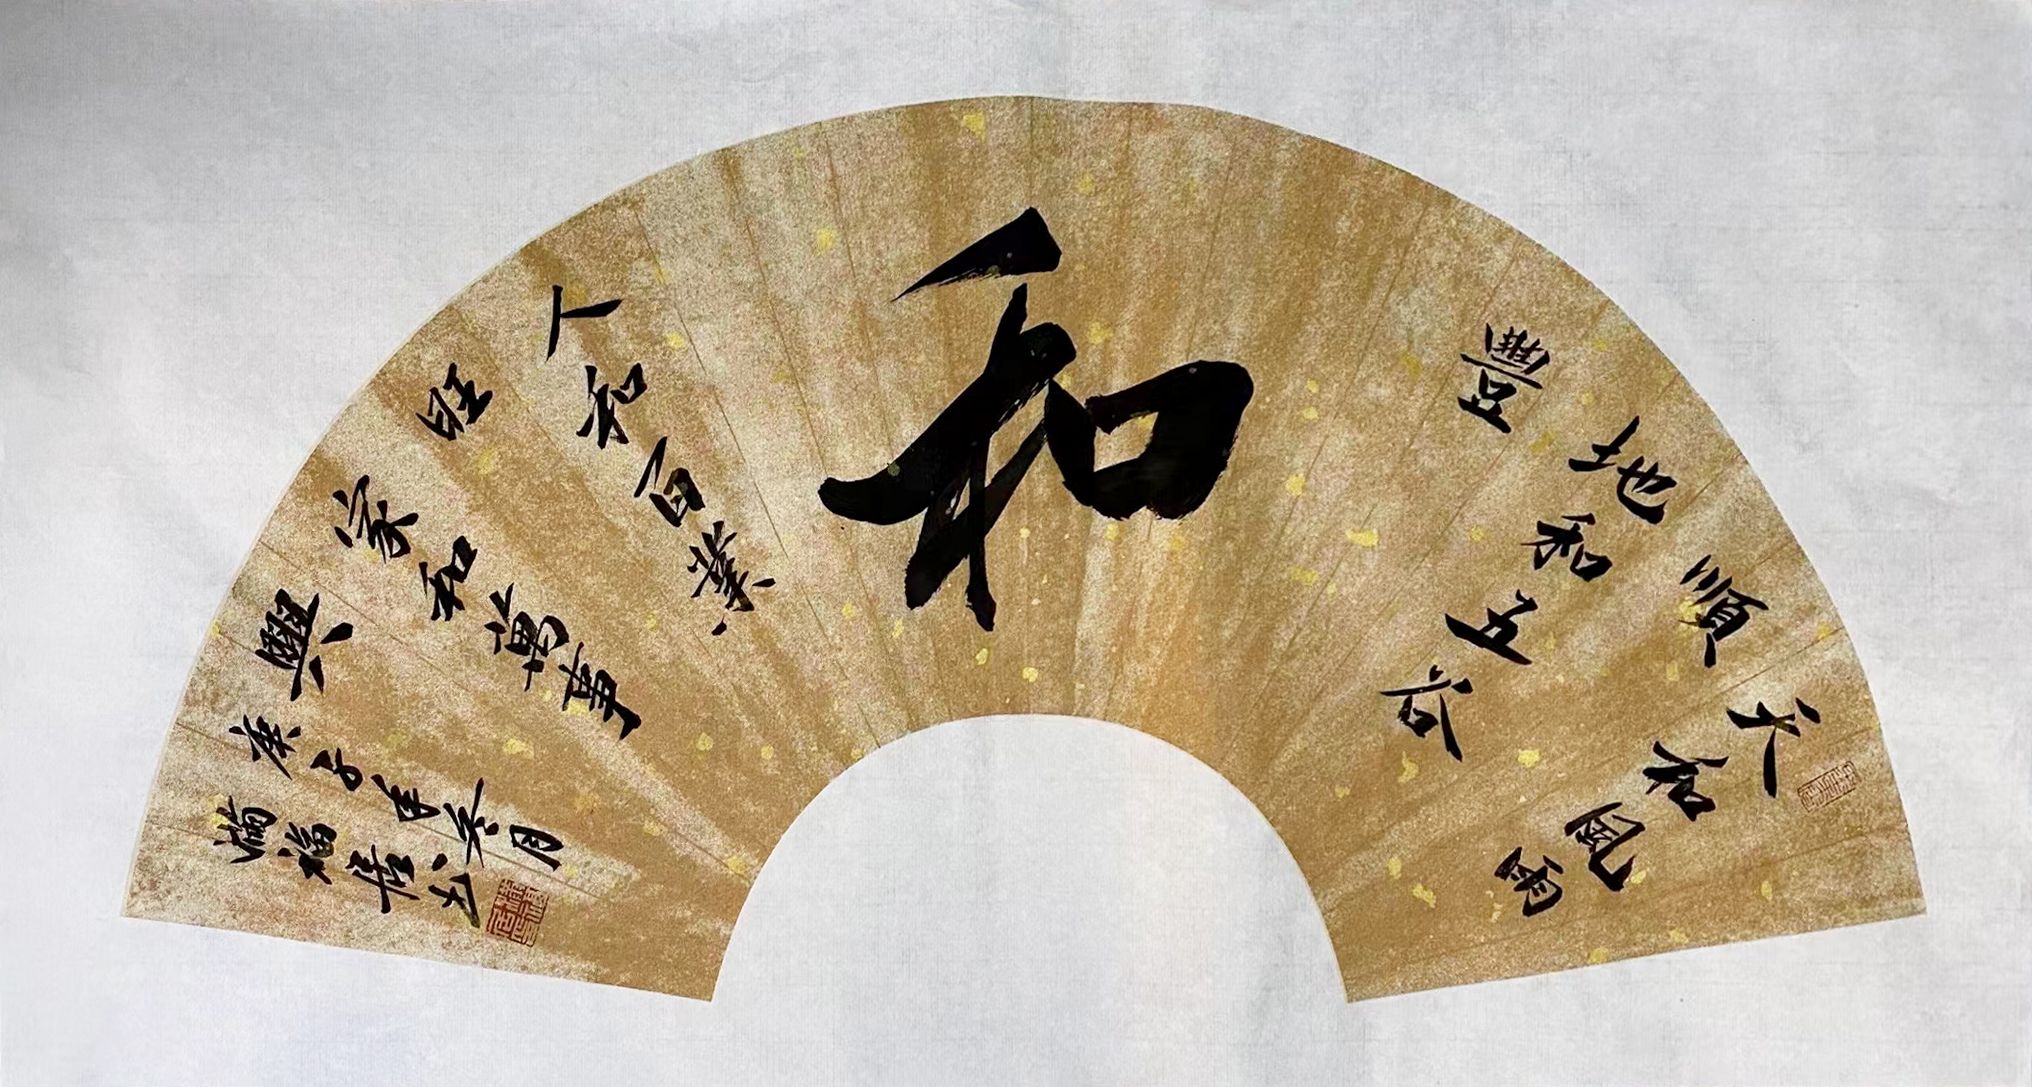 天和風雨
順
地和五谷
豐
和
人和百業
旺
家和萬事
興
庚子年冬月
滿福居士